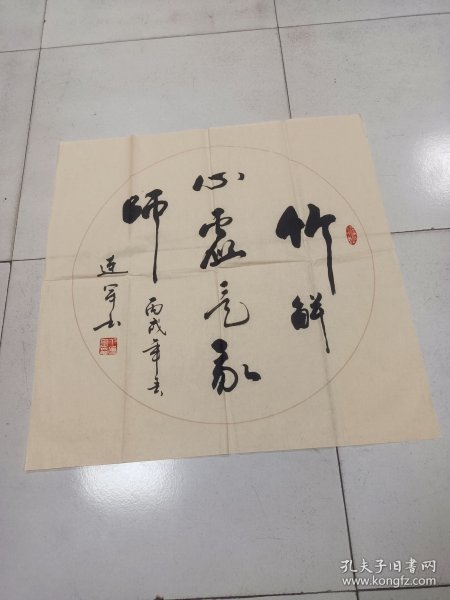 竹解
心虚是我
师
丙戌年春
连军书
孔夫子旧书网
www.kongfz.com